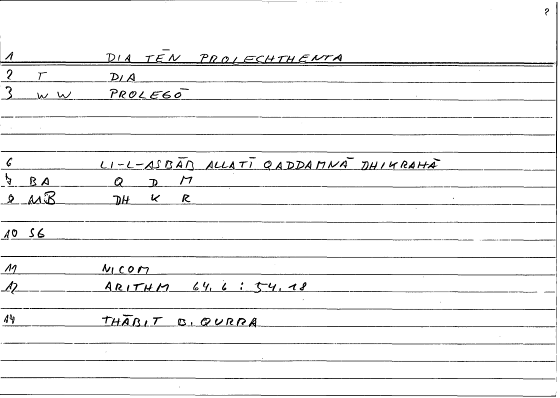 ?
1 DIA TĒN PROLECHTHENTA
2 T DIA
3 WW PROLEGŌ
6 LI-L-ASBĀB ALLATĪ QADDAMNĀ DHIKRAHĀ
BA Q D M
MB DH K R
10 SG
11 NICOM
12 ARITHM 64.6 : 54.18
14 THĀBIT B. QURRA